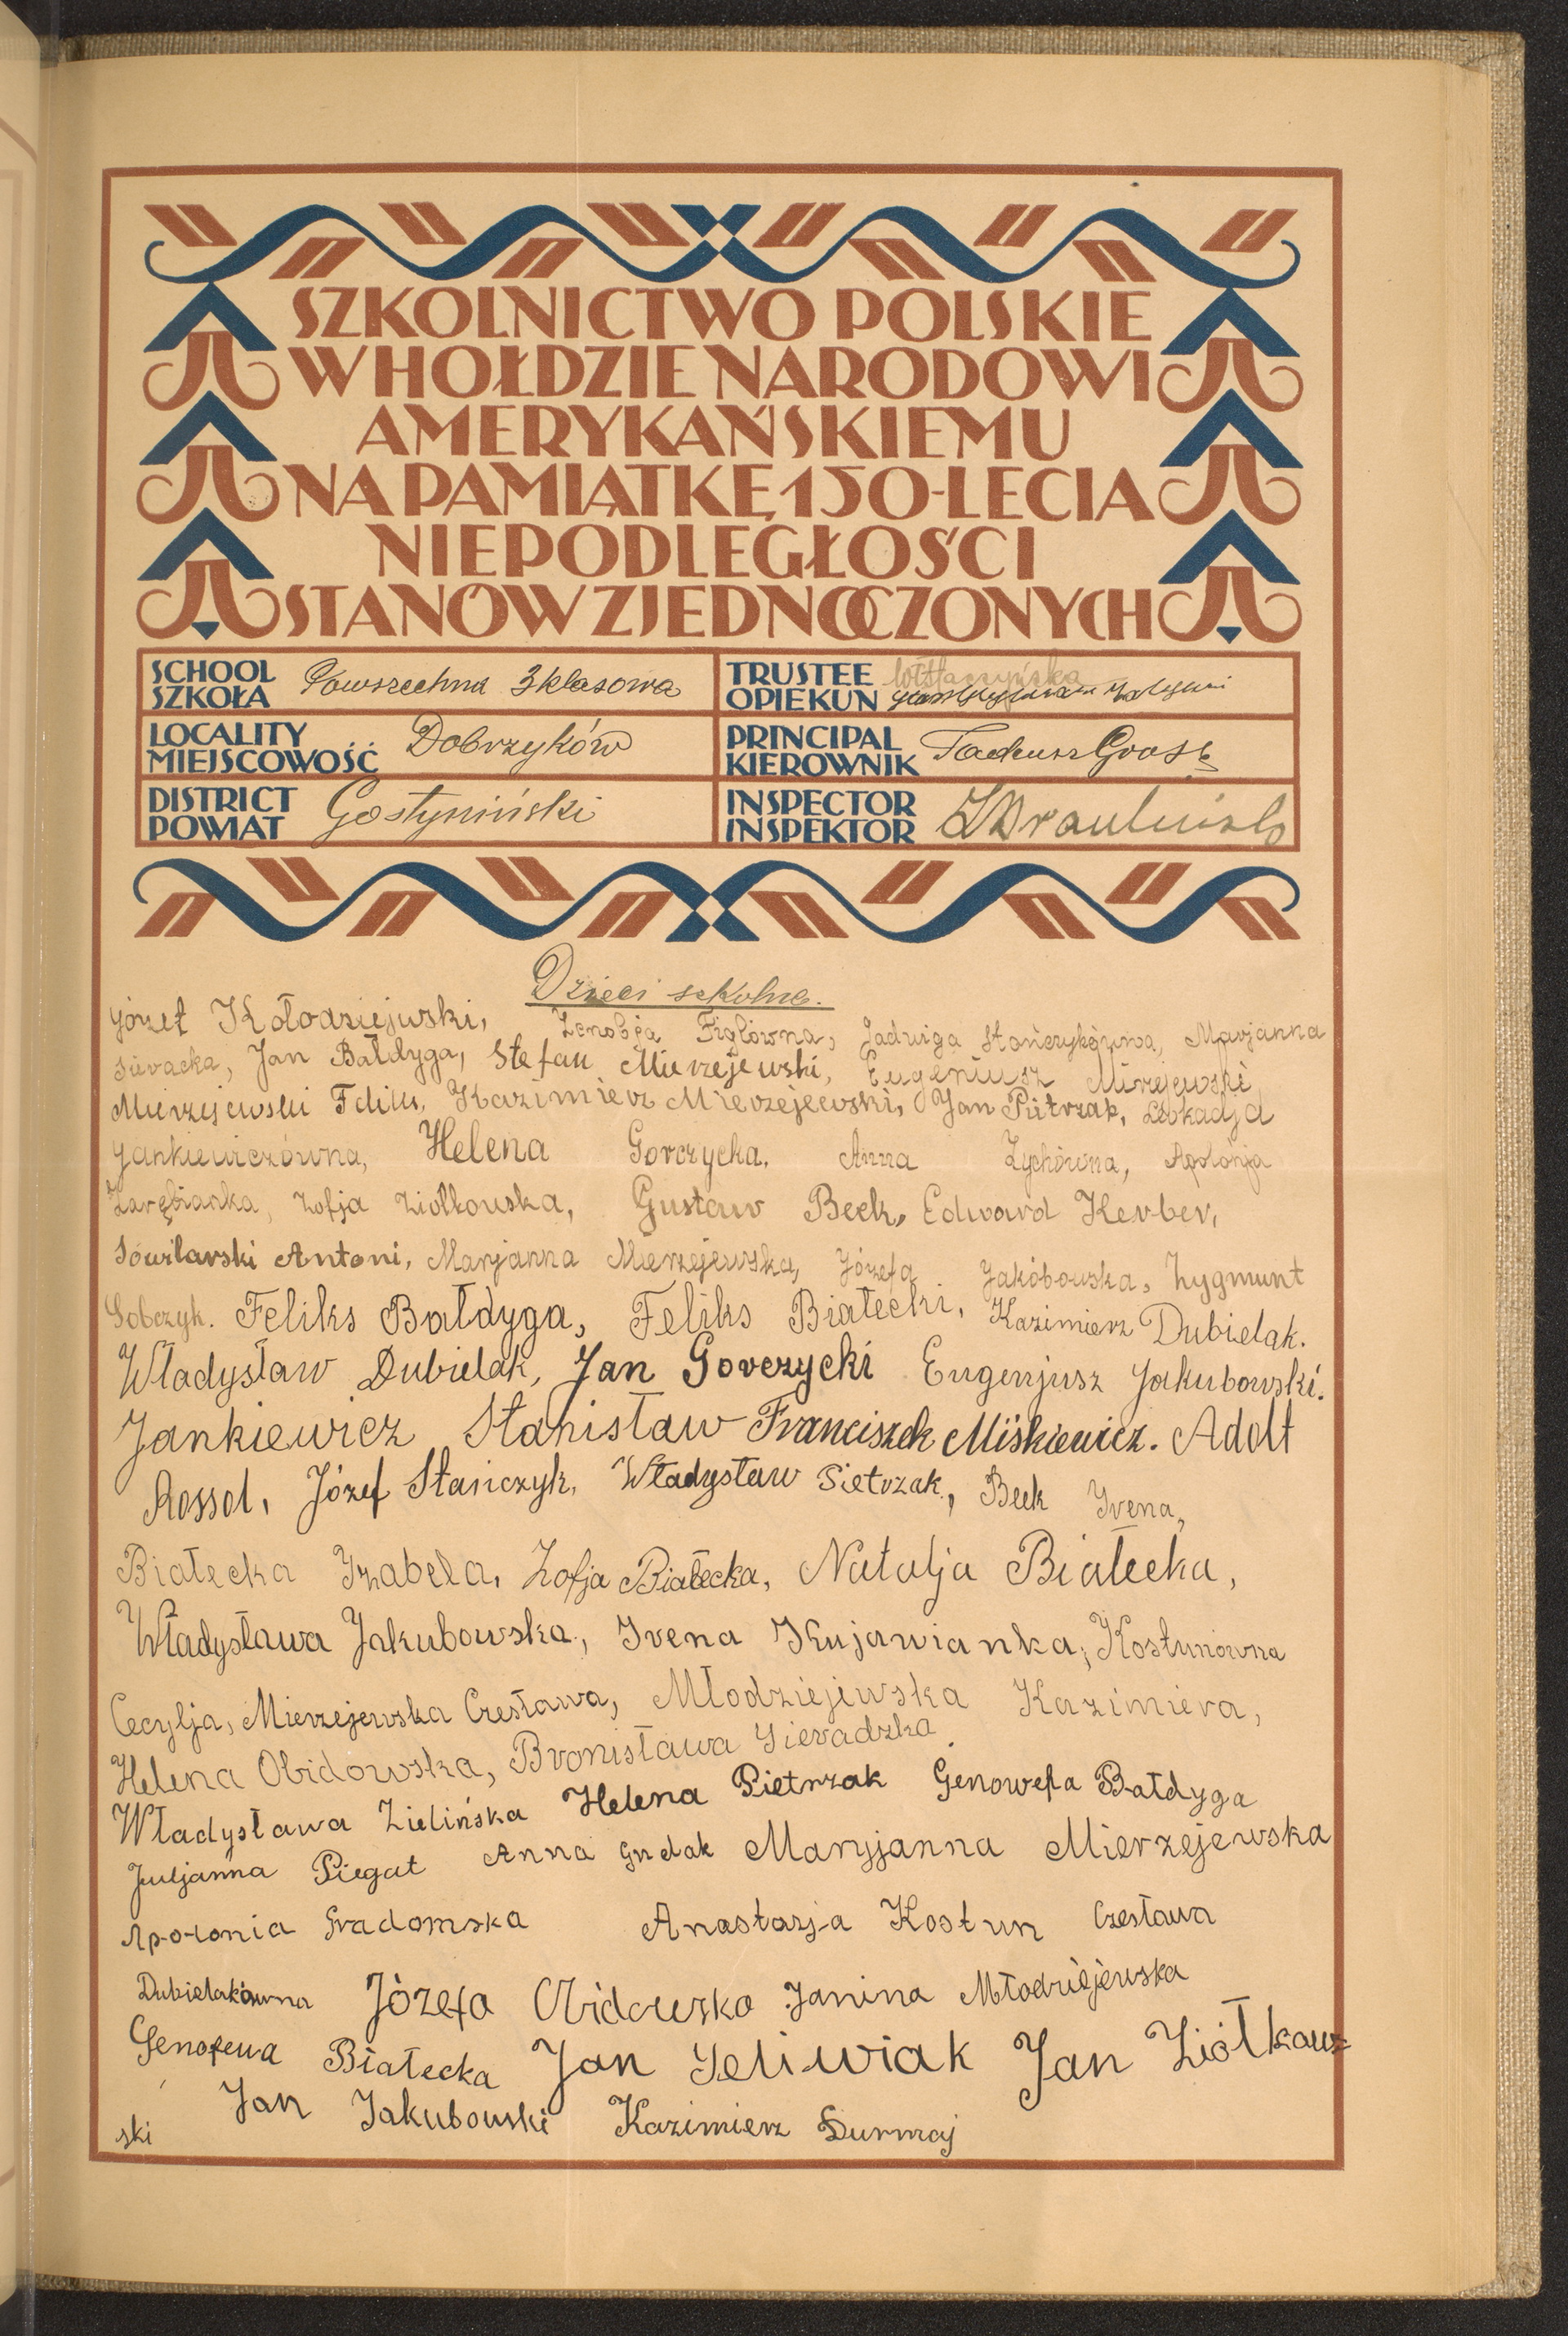 SZKOLNICTWO POLSKIE
W HOŁDZIE NARODOWI
AMERYKAŃSKIEMU
NA PAMIĄTKĘ 150-LECIA
NIEPODLEGŁOŚCI
STANÓW ZJEDNOCZONYCH
SCHOOL
SZKOŁA
Powszechna 3 klasowa
TRUSTEE
OPIEKUN
LOCALITY
MIEJSCOWOŚĆ
Dobrzyków
PRINCIPAL
KIEROWNIK
Tadeusz
DISTRICT
POWIAT
Gostyniński
INSPECTOR
INSPEKTOR
Dzieci szkolne.
Józef Kołodziejwski, Zenobja Figlówna, Jadwiga Stańczykówna, Marjanna
Siracka, Jan Bałdyga, Stefan Mierzejewski, Eugeniusz Mirzejewski
Mierzejewski Kazimierz Mierzejewski, Jan Pietrzak, Leokadja
Jankiewiczówna, Helena Gorczycka, Anna Zychówna, Apolonja
Zarębianka, Zofja Ziółkowska, Gustaw Beek, Edward Kerber,
Antoni, Marjanna Mierzejewska, Józefa Jakóbowska, Zygmunt
Sobczyk. Feliks Bałdyga, Feliks Białecki, Kazimierz Dubielak.
Władysław Dubielak, Jan Gorczycki Eugenjusz Jakubowski.
Jankiewicz Stanisław Franciszek Miśkiewicz. Adolf
Rossol, Józef Stańczyk, Władysław Pietrzak, Beek Irena,
Białecka Izabela, Zofja Białecka, Natalja Białecka,
Władysława Jakubowska, Irena Kujawianka, Kostunówna
Cecylja, Mierzejewska Czesława, Młodziejewska Kazimiera,
Helena Obidowska, Bronisława Sieradzka.
Władysława Zielińska Helena Pietrzak Genowefa Bałdyga
Juljanna Piegat Anna Gudak Maryjanna Mierzejewska
Apolonia Gradomska Anastazja Kostun Czesława
Dubielakówna Józefa Obidowska Janina Młodziejewska
Genofewa Białecka Jan Seliwiak Jan Ziółkow=
ski Jan Jakubowski Kazimierz Durmaj